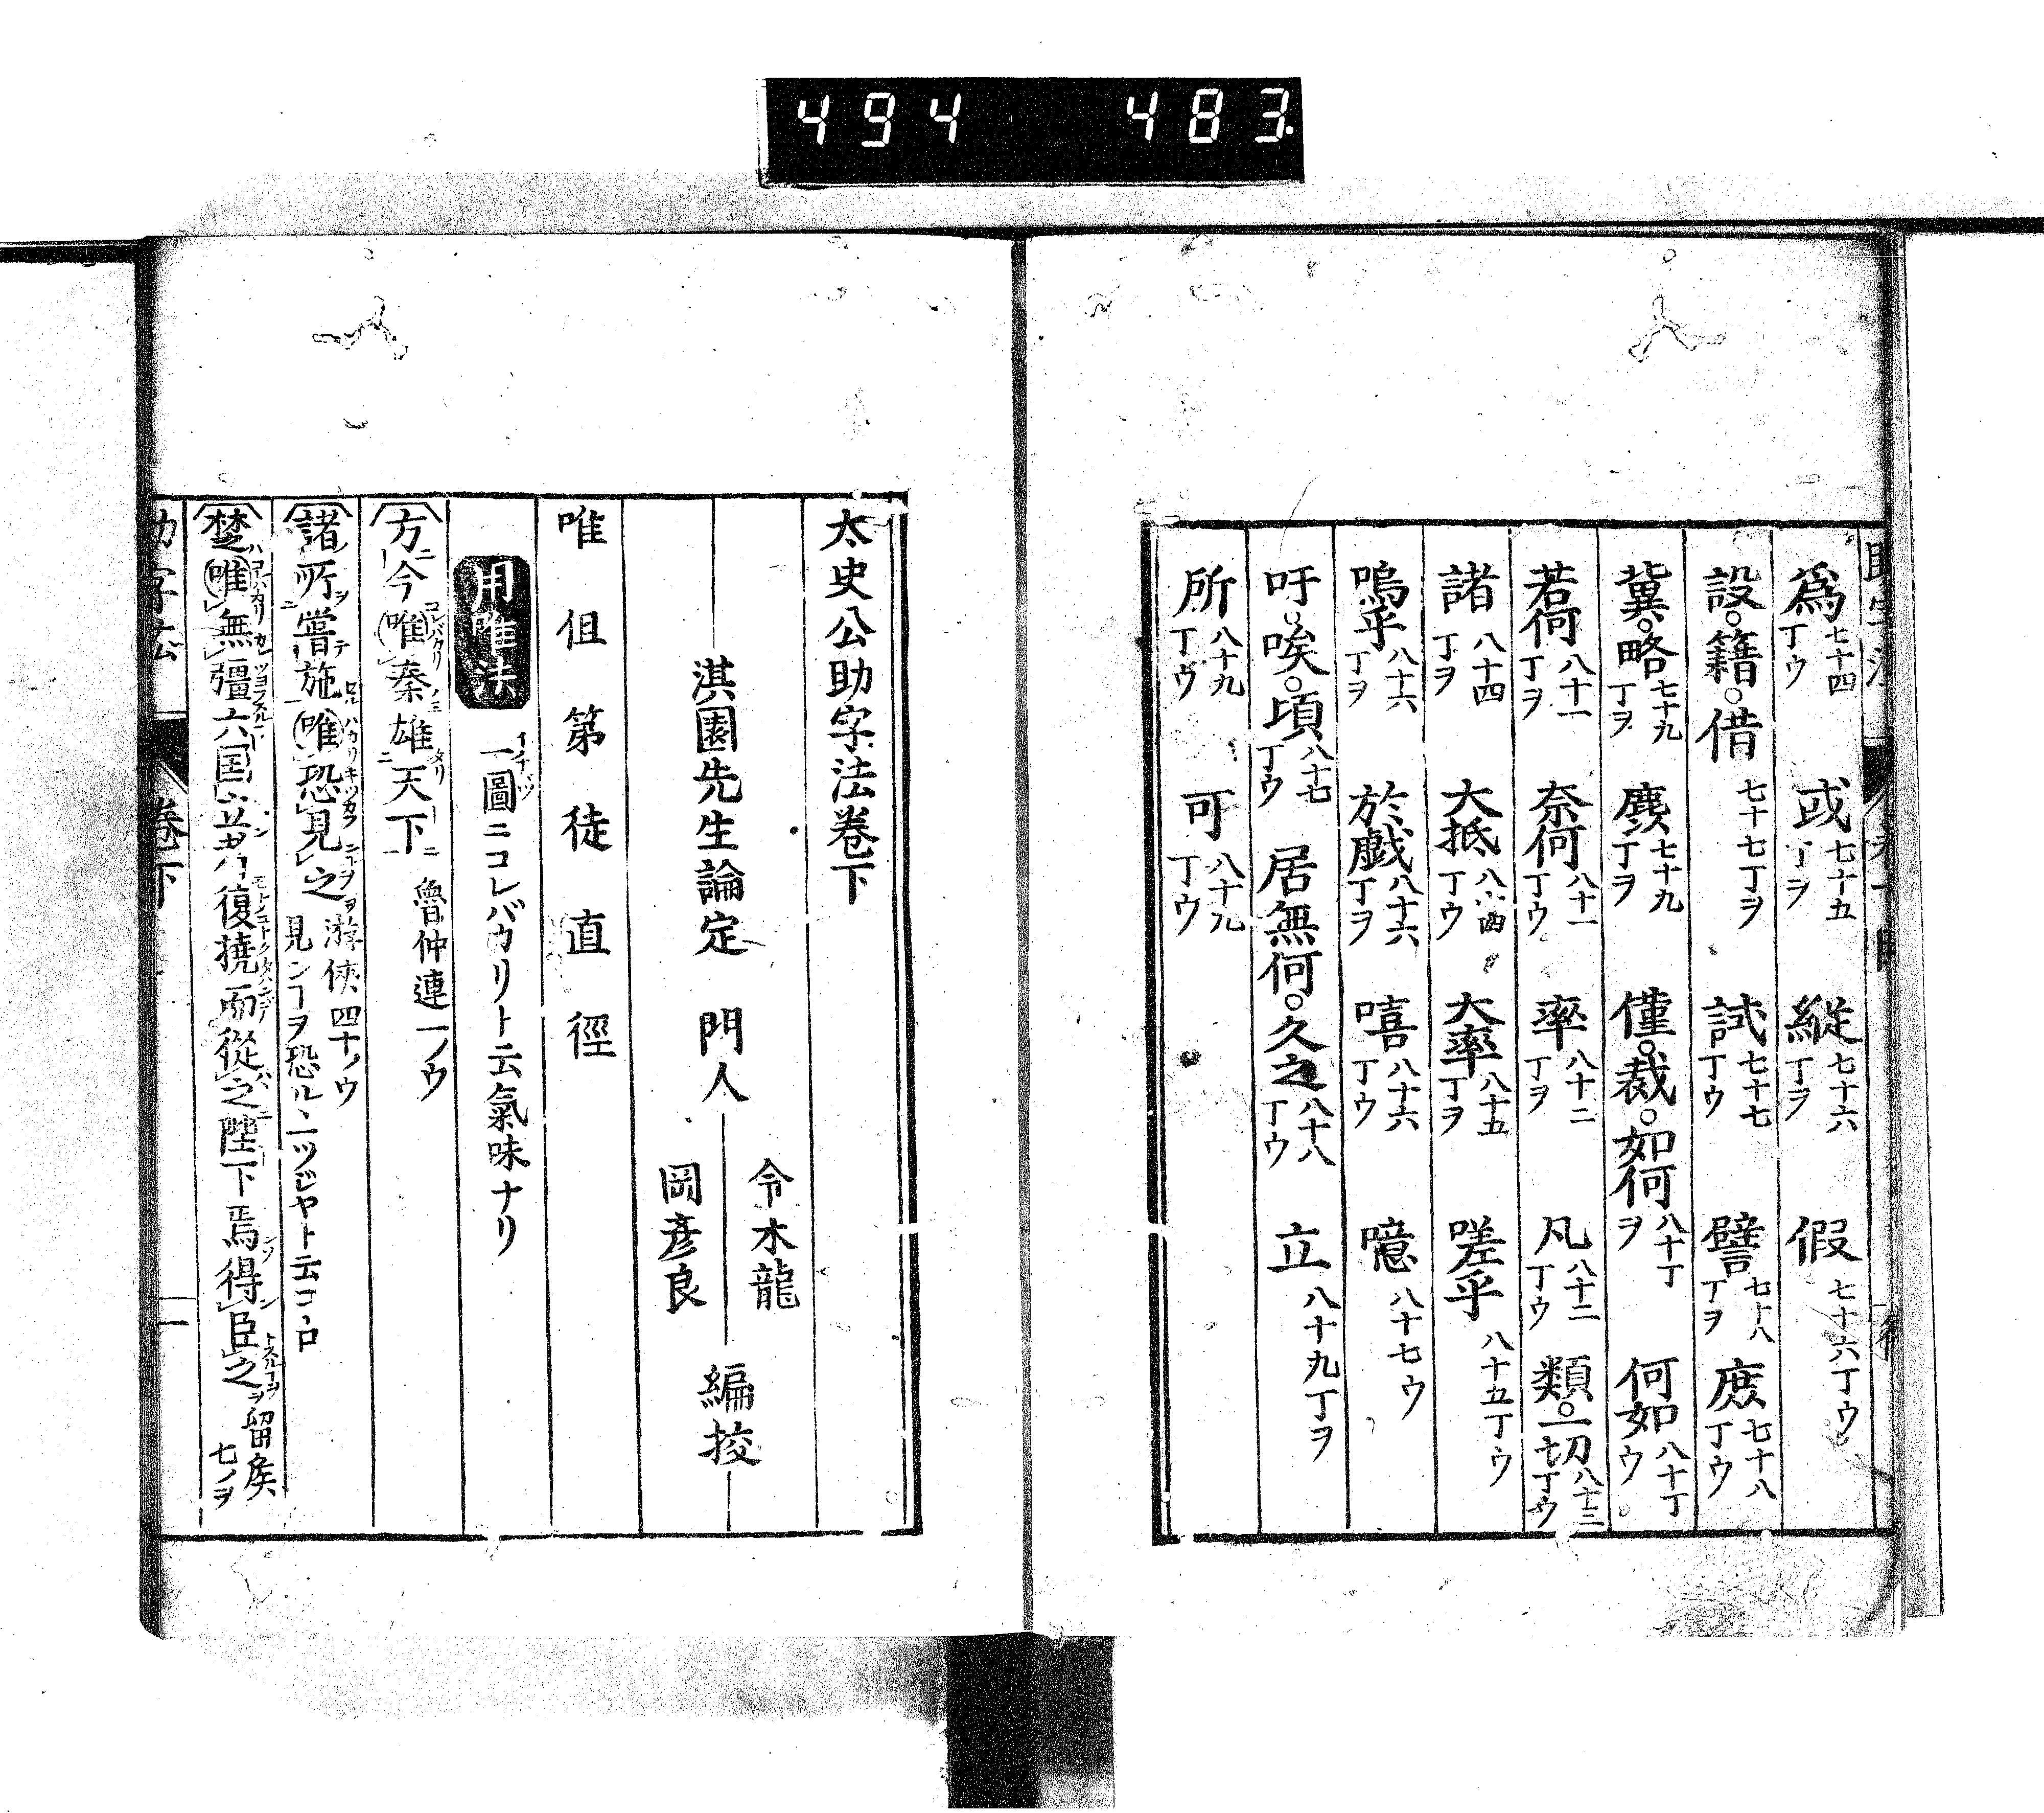 494 483
爲 七十四丁ウ 或 七十五丁ヲ 縱 七十六丁ヲ 假 七十六丁ウ
設。籍。借 七十七丁ヲ 試 七十七丁ウ 譬 七十八丁ヲ 庶 七十八丁ウ
冀。略 七十九丁ヲ 麌 七十九丁ヲ 僅。裁。如何 八十丁ヲ 何如 八十丁ウ
若何 八十一丁ヲ 奈何 八十一丁ウ 率 八十二丁ヲ 凡 八十二丁ウ 類。一切 八十三丁ウ
諸 八十四丁ヲ 大抵 八十四丁ウ 大率 八十五丁ヲ 嗟乎 八十五丁ウ
嗚乎 八十六丁ヲ 於戯 八十六丁ヲ 嘻 八十六丁ウ 噫 八十七ウ
吁。唉。頃 八十七丁ウ 居無何。久之 八十八丁ウ 立 八十九丁ヲ
所 八十九丁ヴ 可 八十九丁ウ
太史公助字法卷下
淇園先生論定 門人 令木龍 岡彦良 編挍
唯 但 第 徒 直 徑
用唯法 一圖ニコレバカリト云氣味ナリ
方今唯秦雄天下 魯仲連一ノウ
諸所嘗施唯恐見之 游俠四十ノウ 見ンヿヲ恐ルヽ一ツジヤト云コヽロ
楚唯無彊六国立者復撓而從之陛下焉得臣之 留矦七ノヲ
助字法 卷下 一